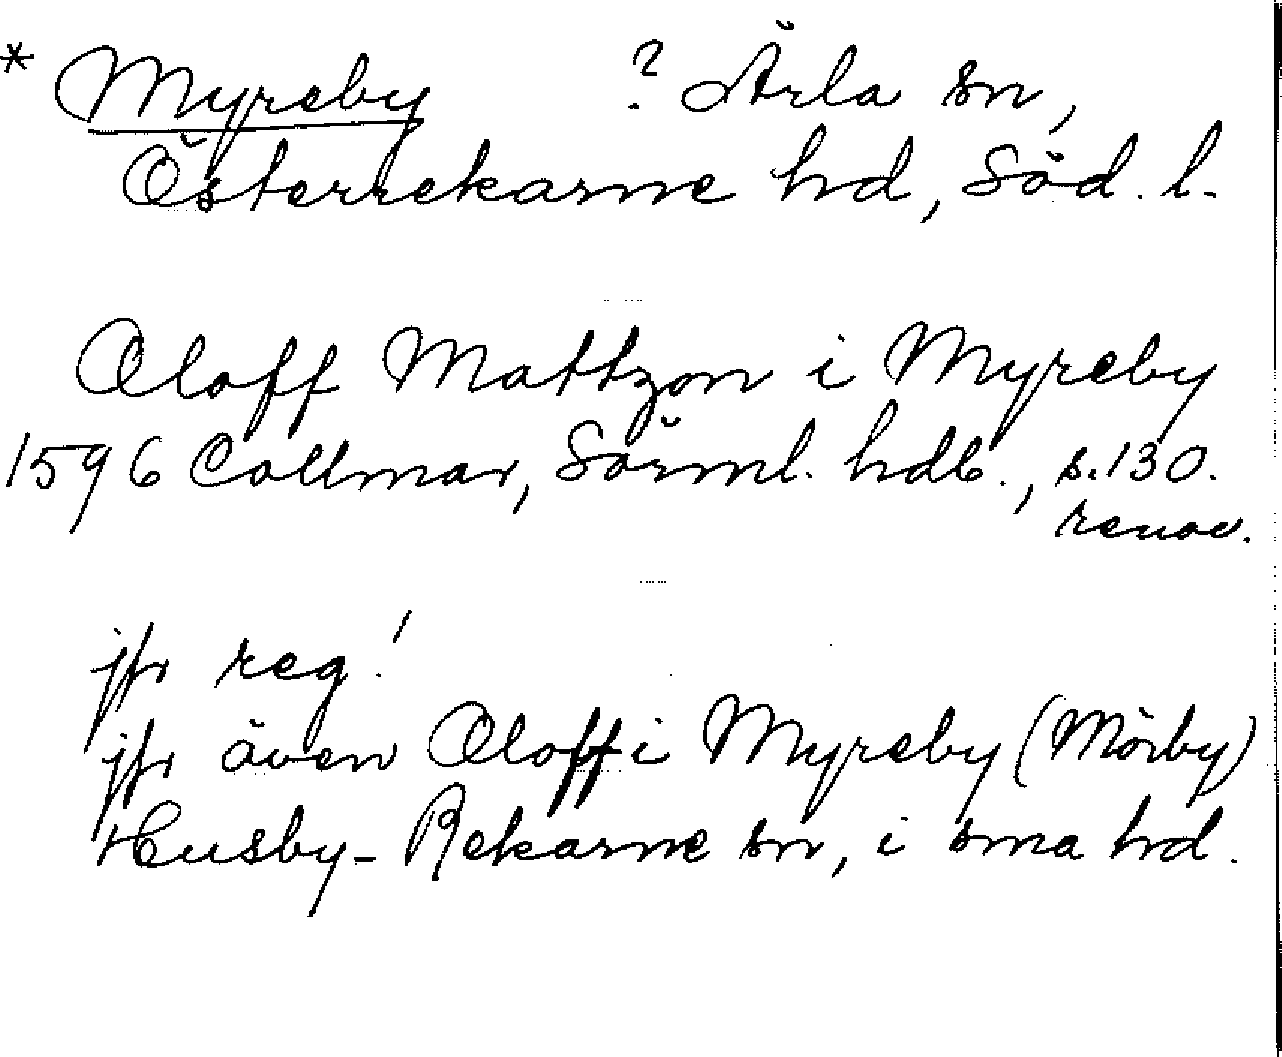 * Myreby ? Ärla sn,
Österrekarne hd, Söd. l.
Oloff Mattzon i Myreby
1596 Collmar, Sörml. hdb., s. 130.
renov.
jfr reg.!
jfr även Oloff i Myreby (Mörby)
Husby-Rekarne sn, i sma hd.